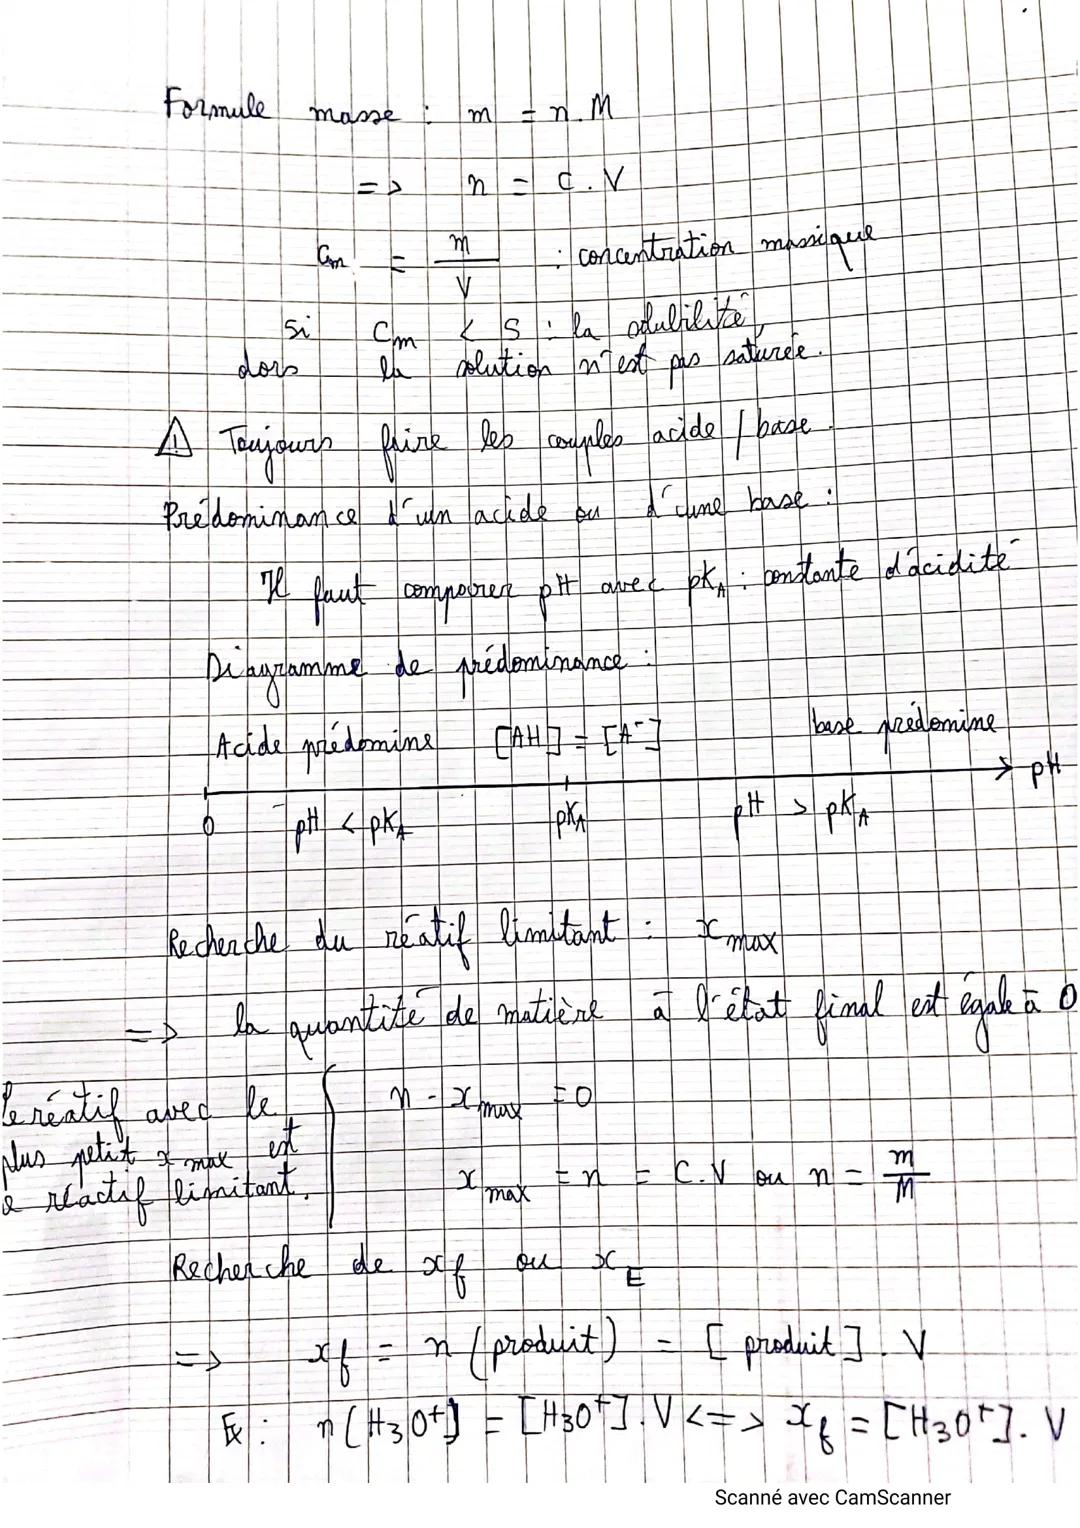 Formule masse : m = n.M
=> n = C.V
Cm = m/V : concentration massique
si Cm < S : la solubilité,
alors la solution n'est pas saturée.
⚠ Toujours faire les couples acide / base.
Prédominance d'un acide ou d'une base :
Il faut comparer pH avec pKA : constante d'acidité
Diagramme de prédominance :
Acide prédomine [AH] = [A⁻] base prédomine
pH
0 pH < pKA pKA pH > pKA
Recherche du réatif limitant : xmax
=> la quantité de matière à l'état final est égale à 0
le réatif avec le n - xmax = 0
plus petit xmax est
le réactif limitant. xmax = n = C.V ou n = m/M
Recherche de xf ou xE
=> xf = n (produit) = [produit]. V
Ex : n(H3O+) = [H3O+]. V <=> xf = [H3O+]. V
Scanné avec CamScanner